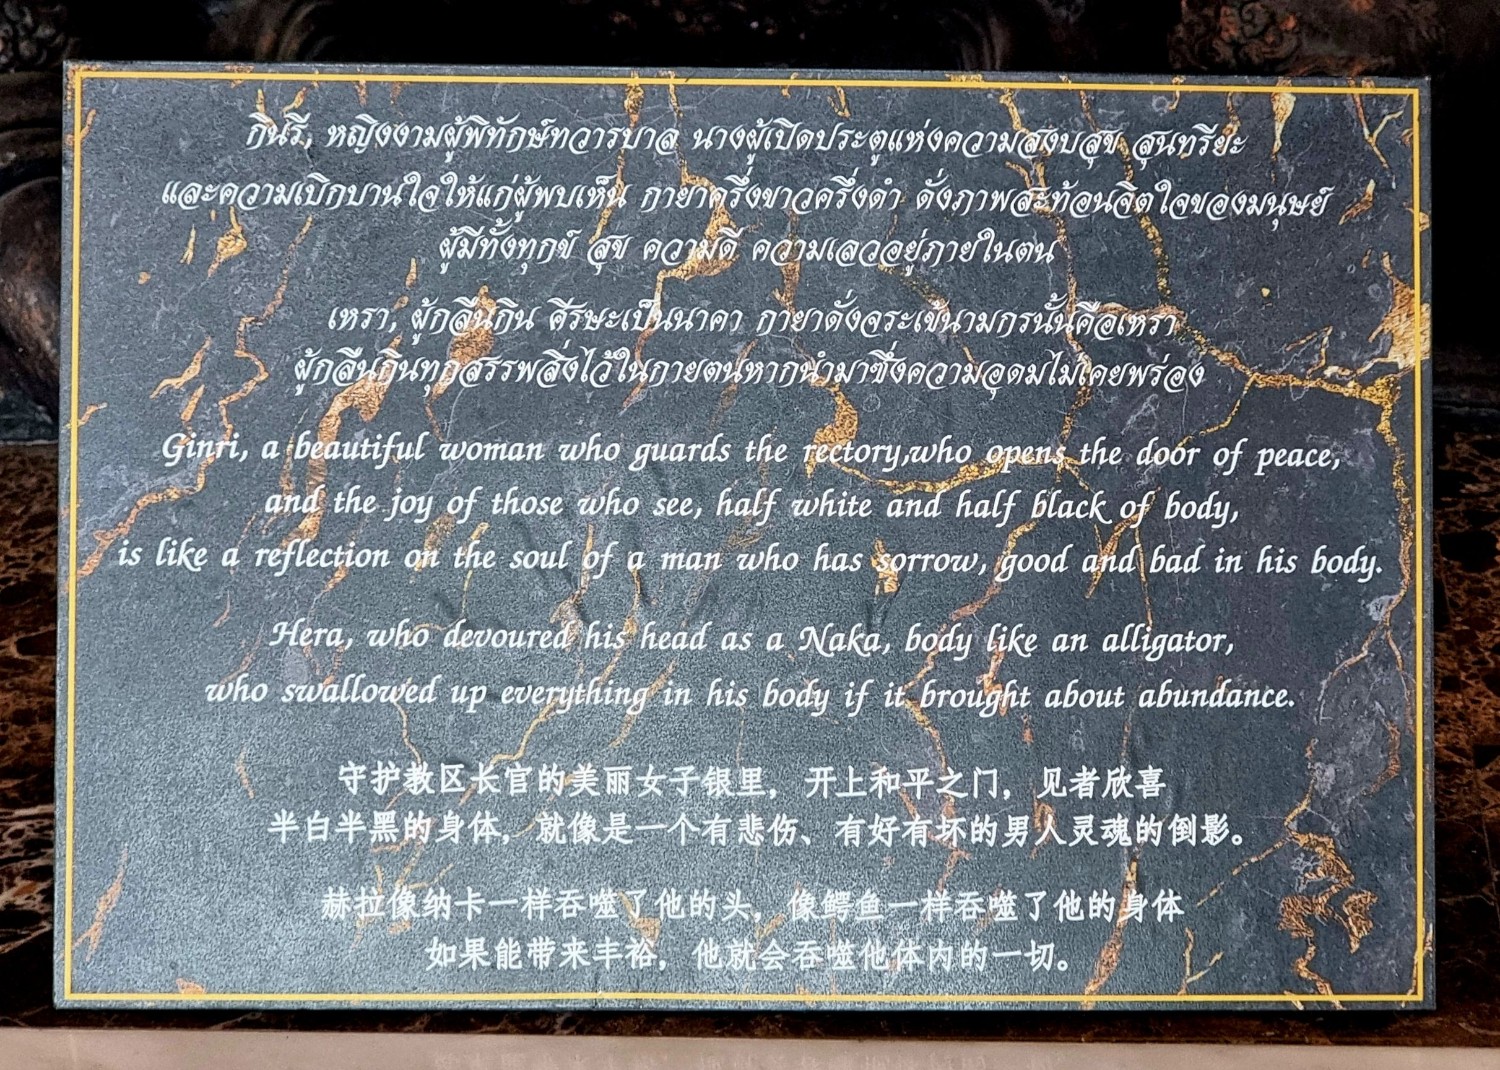 กินรี, หญิงงามผู้พิทักษ์ทวารบาล นางผู้เปิดประตูแห่งความสงบสุข สุนทรียะ
และความเบิกบานใจให้แก่ผู้พบเห็น กายาครึ่งขาวครึ่งดำ ดั่งภาพสะท้อนจิตใจของมนุษย์
ผู้มีทั้งทุกข์ สุข ความดี ความเลวอยู่ภายในตน
เหรา, ผู้กลืนกิน ศีรษะเป็นนาคา กายาดั่งจระเข้นามกรนั้นคือเหรา
ผู้กลืนกินทุกสรรพสิ่งไว้ในกายตนหากนำมาซึ่งความอุดมไม่เคยพร่อง
Ginri, a beautiful woman who guards the rectory,who opens the door of peace,
and the joy of those who see, half white and half black of body,
is like a reflection on the soul of a man who has sorrow, good and bad in his body.
Hera, who devoured his head as a Naka, body like an alligator,
who swallowed up everything in his body if it brought about abundance.
守护教区长官的美丽女子银里，开上和平之门，见者欣喜
半白半黑的身体，就像是一个有悲伤、有好有坏的男人灵魂的倒影。
赫拉像纳卡一样吞噬了他的头，像鳄鱼一样吞噬了他的身体
如果能带来丰裕，他就会吞噬他体内的一切。